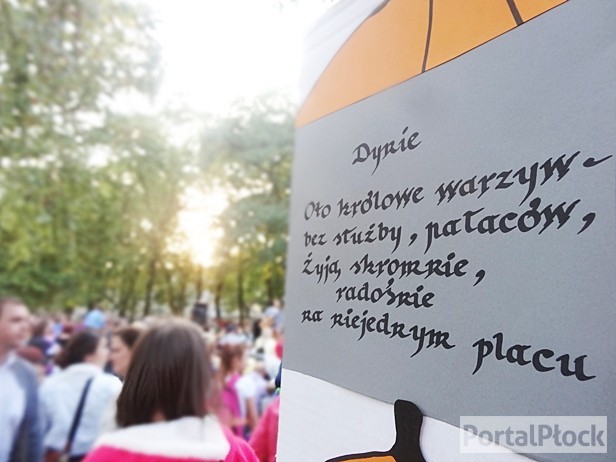 Dynie
Oto królowe warzyw -
bez służby, pałaców,
Żyją skromnie,
radośnie
na niejednym placu
PortalPłock